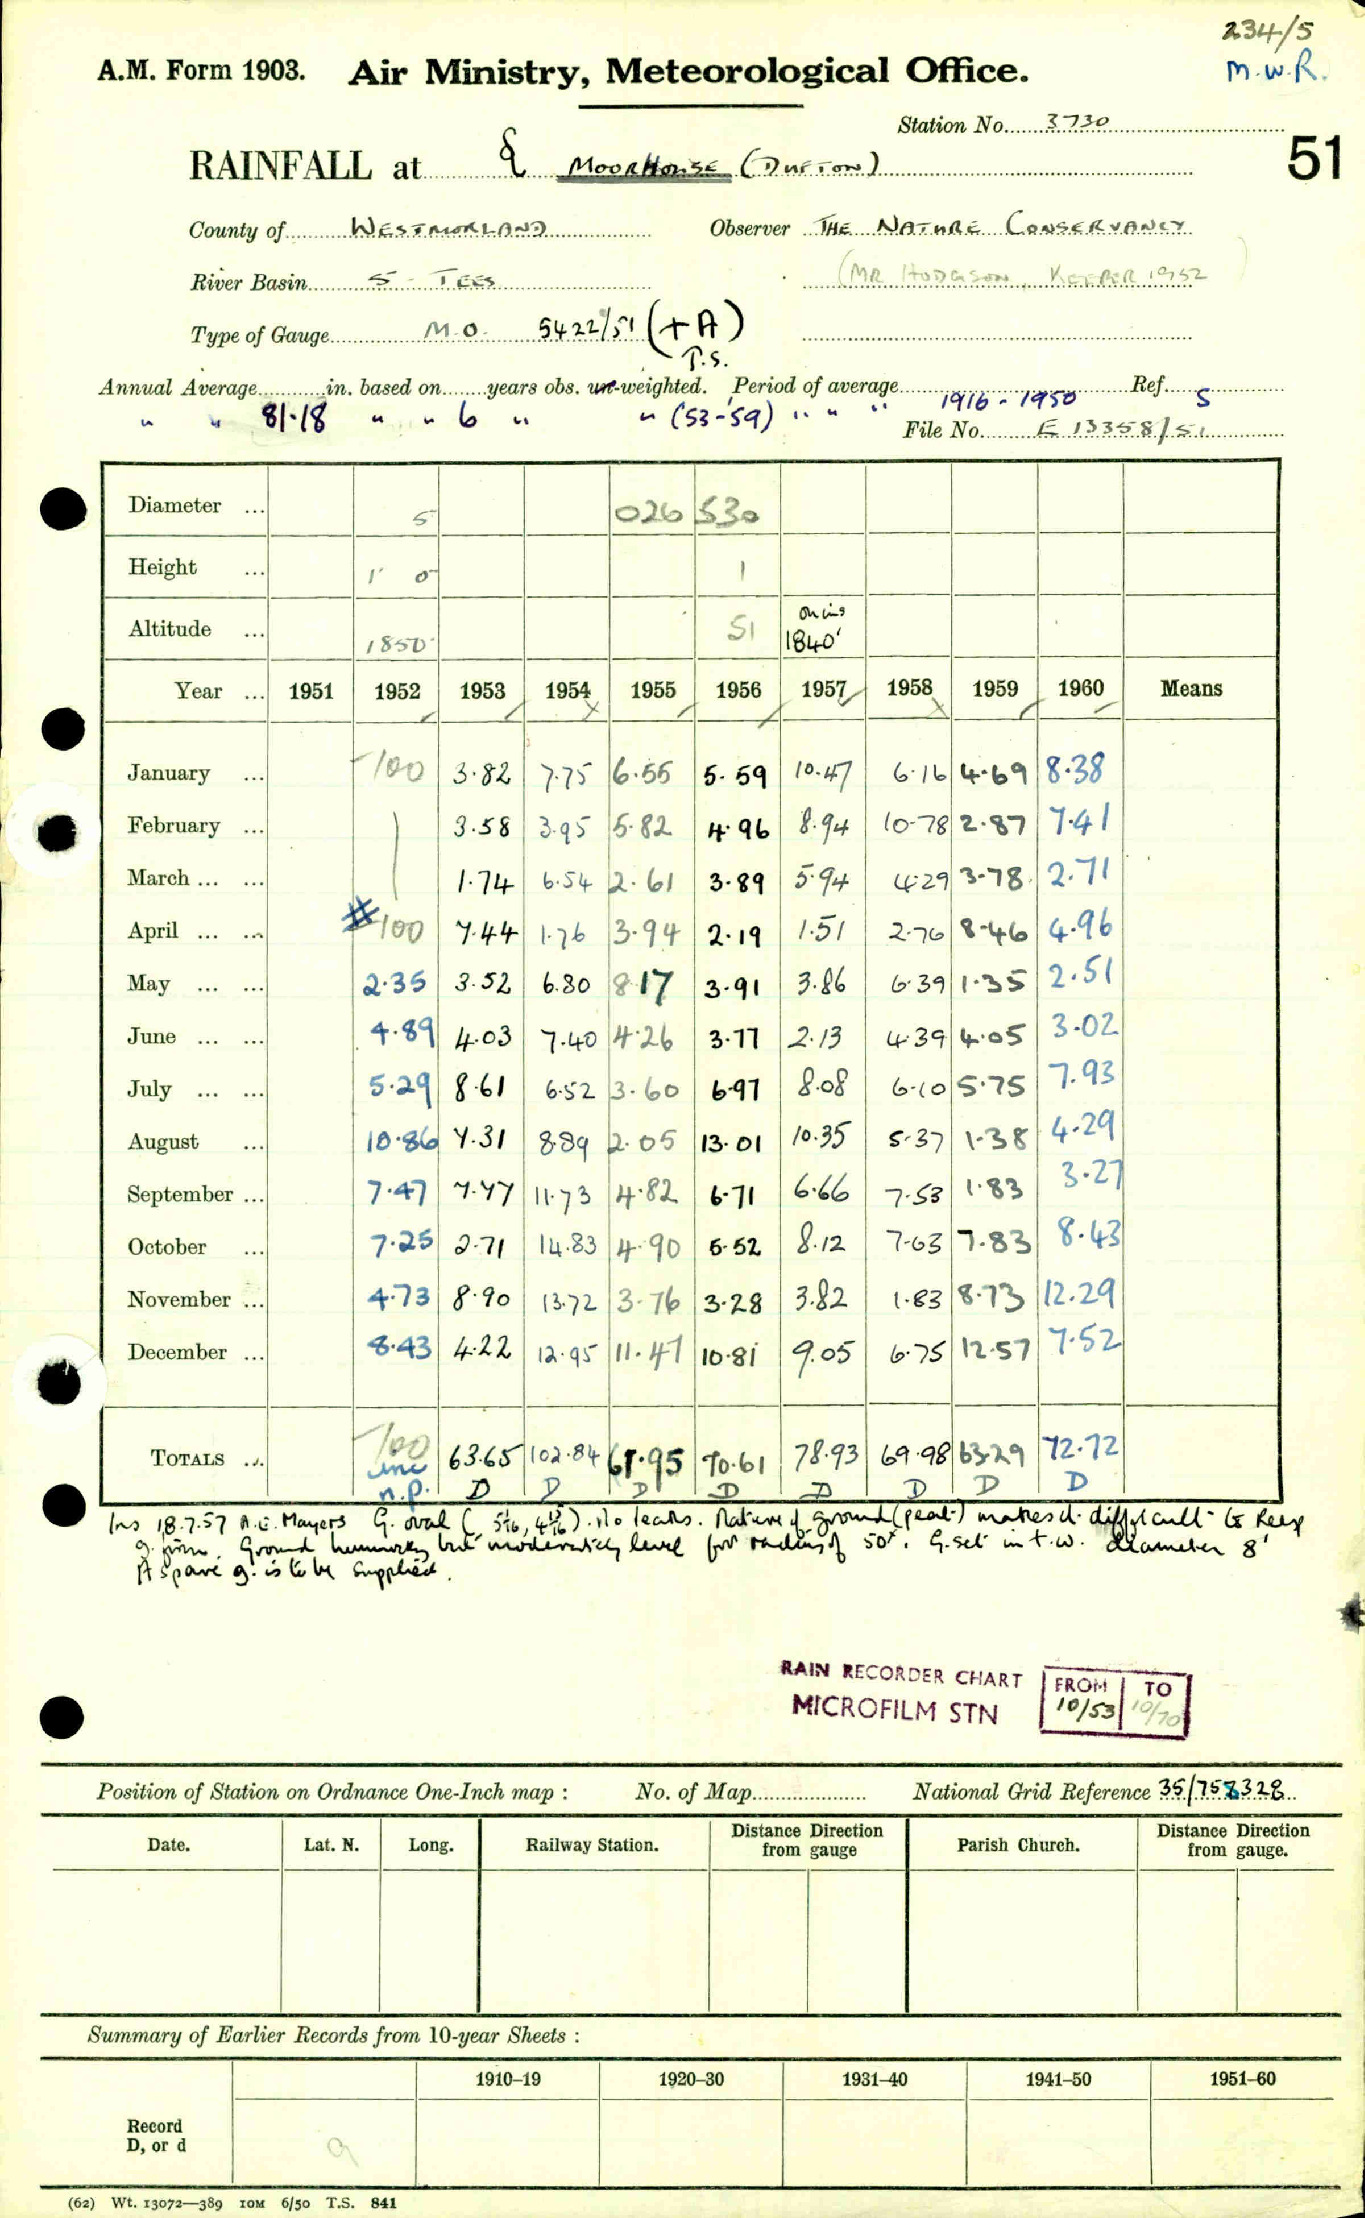 234/5
A.M. Form 1903. Air Ministry, Meteorological Office. M.W.R.
Station No. 3730
RAINFALL at MOORHOUSE (DUFTON) 51
County of WESTMORLAND Observer THE NATURE CONSERVANCY
River Basin 5 - TEES (MR HODGSON, KEEPER 1952)
Type of Gauge M.O. 5422/51 (+A)
T.S.
Annual Average in. based on years obs. un-weighted. Period of average 1916 - 1950 Ref. S
" " 81.18 " " 6 " " (53-59) " " "
File No. E 13358/51
Diameter ... 5 026 530
Height ... 1' 0 1
Altitude ... 1850' 51 on ins 1840'
Year ... 1951 1952 1953 1954 1955 1956 1957 1958 1959 1960 Means
January ... -100 3.82 7.75 6.55 5.59 10.47 6.16 4.69 8.38
February ... 3.58 3.95 5.82 4.96 8.94 10.78 2.87 7.41
March ... ... 1.74 6.54 2.61 3.89 5.94 4.29 3.78 2.71
April ... ... # -100 7.44 1.76 3.94 2.19 1.51 2.76 8.46 4.96
May ... ... 2.35 3.52 6.80 8.17 3.91 3.86 6.39 1.35 2.51
June ... ... 4.89 4.03 7.40 4.26 3.77 2.13 4.39 4.05 3.02
July ... ... 5.29 8.61 6.52 3.60 6.97 8.08 6.10 5.75 7.93
August ... 10.86 7.31 8.89 2.05 13.01 10.35 5.37 1.38 4.29
September ... 7.47 7.77 11.73 4.82 6.71 6.66 7.53 1.83 3.27
October ... 7.25 2.71 14.83 4.90 5.52 8.12 7.63 7.83 8.43
November ... 4.73 8.90 13.72 3.76 3.28 3.82 1.83 8.73 12.29
December ... 8.43 4.22 12.95 11.47 10.81 9.05 6.75 12.57 7.52
TOTALS ... -100 63.65 102.84 61.95 70.61 78.93 69.98 63.29 72.72
inc
n.p. D D D D D D D D
Ins 18.7.57 A.E. Mayers G. oval (5 1/16, 4 15/16). No leaks. Nature of ground (peat) makes it difficult to keep
g. firm. Ground hummocky but moderately level for radius of 50'. G. set in t.w. diameter 8'
A spare g. is to be supplied.
RAIN RECORDER CHART FROM TO
MICROFILM STN 10/53 10/70
Position of Station on Ordnance One-Inch map : No. of Map National Grid Reference 35/758328
Date. Lat. N. Long. Railway Station. Distance Direction from gauge Parish Church. Distance Direction from gauge.
Summary of Earlier Records from 10-year Sheets :
1910–19 1920–30 1931–40 1941–50 1951–60
Record
D, or d 9
(62) Wt. 13072—389 10M 6/50 T.S. 841